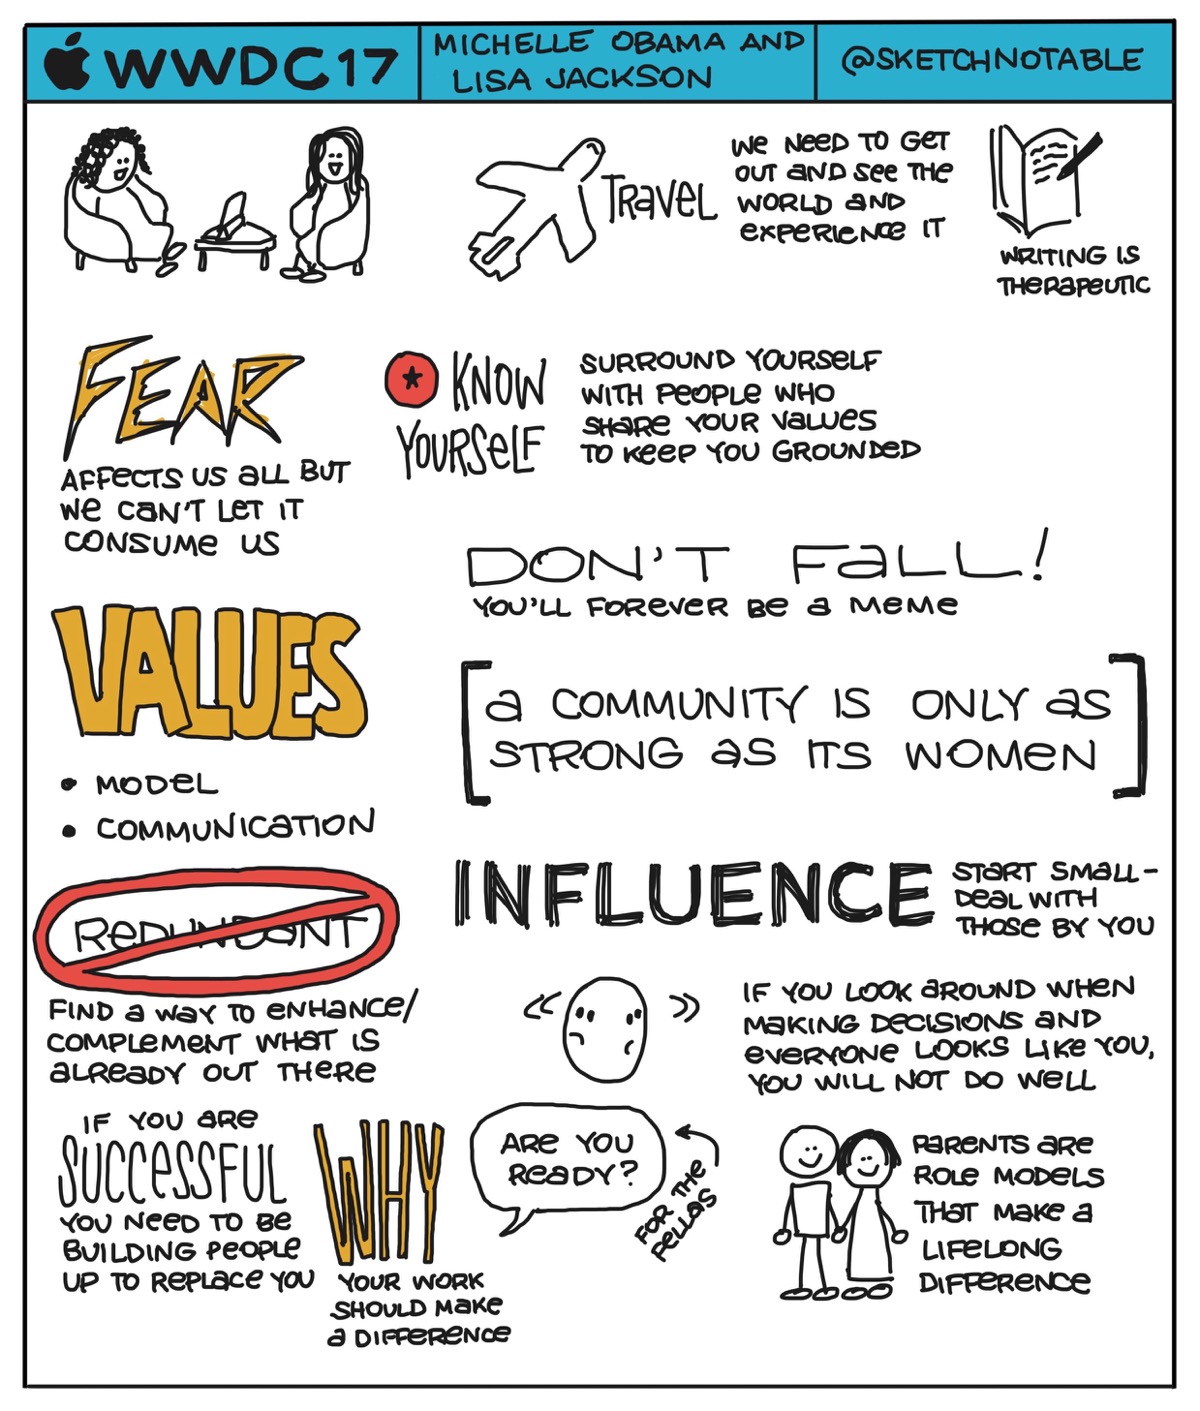 WWDC17
MICHELLE OBAMA AND
LISA JACKSON
@SKETCHNOTABLE
TRAVEL
WE NEED TO GET
OUT AND SEE THE
WORLD AND
EXPERIENCE IT
WRITING IS
THERAPEUTIC
FEAR
AFFECTS US ALL BUT
WE CAN'T LET IT
CONSUME US
KNOW
YOURSELF
SURROUND YOURSELF
WITH PEOPLE WHO
SHARE YOUR VALUES
TO KEEP YOU GROUNDED
DON'T FALL!
YOU'LL FOREVER BE A MEME
VALUES
• MODEL
• COMMUNICATION
[A COMMUNITY IS ONLY AS
STRONG AS ITS WOMEN]
REDUNDANT
FIND A WAY TO ENHANCE/
COMPLEMENT WHAT IS
ALREADY OUT THERE
INFLUENCE
START SMALL-
DEAL WITH
THOSE BY YOU
IF YOU LOOK AROUND WHEN
MAKING DECISIONS AND
EVERYONE LOOKS LIKE YOU,
YOU WILL NOT DO WELL
IF YOU ARE
SUCCESSFUL
YOU NEED TO BE
BUILDING PEOPLE
UP TO REPLACE YOU
WHY
YOUR WORK
SHOULD MAKE
A DIFFERENCE
ARE YOU
READY?
FOR THE
FELLAS
PARENTS ARE
ROLE MODELS
THAT MAKE A
LIFELONG
DIFFERENCE